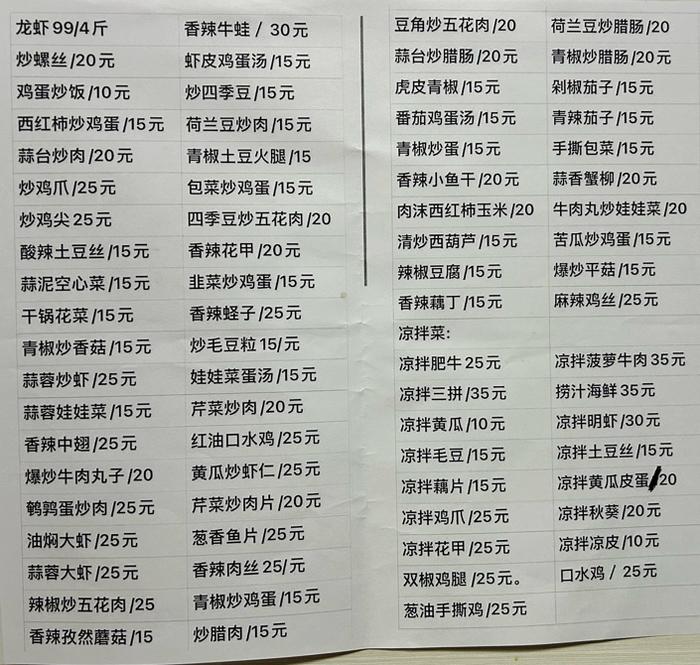 龙虾 99/4斤 香辣牛蛙 / 30元
炒螺丝/20元 虾皮鸡蛋汤/15元
鸡蛋炒饭/10元 炒四季豆/15元
西红柿炒鸡蛋/15元 荷兰豆炒肉/15元
蒜台炒肉/20元 青椒土豆火腿/15
炒鸡爪/25元 包菜炒鸡蛋/15元
炒鸡尖 25元 四季豆炒五花肉/20
酸辣土豆丝/15元 香辣花甲/20元
蒜泥空心菜/15元 韭菜炒鸡蛋/15元
干锅花菜/15元 香辣蛏子/25元
青椒炒香菇/15元 炒毛豆粒 15/元
蒜蓉炒虾/25元 娃娃菜蛋汤/15元
蒜蓉娃娃菜/15元 芹菜炒肉/20元
香辣中翅/25元 红油口水鸡/25元
爆炒牛肉丸子/20 黄瓜炒虾仁/25元
鹌鹑蛋炒肉/25元 芹菜炒肉片/20元
油焖大虾/25元 葱香鱼片/25元
蒜蓉大虾/25元 香辣肉丝 25/元
辣椒炒五花肉/25 青椒炒鸡蛋/15元
香辣孜然蘑菇/15 炒腊肉/15元
豆角炒五花肉/20 荷兰豆炒腊肠/20
蒜台炒腊肠/20元 青椒炒腊肠/20元
虎皮青椒/15元 剁椒茄子/15元
番茄鸡蛋汤/15元 青辣茄子/15元
青椒炒蛋/15元 手撕包菜/15元
香辣小鱼干/20元 蒜香蟹柳/20元
肉沫西红柿玉米/20 牛肉丸炒娃娃菜/20
清炒西葫芦/15元 苦瓜炒鸡蛋/15元
辣椒豆腐/15元 爆炒平菇/15元
香辣藕丁/15元 麻辣鸡丝/25元
凉拌菜:
凉拌肥牛 25元 凉拌菠萝牛肉 35元
凉拌三拼/35元 捞汁海鲜 35元
凉拌黄瓜/10元 凉拌明虾/30元
凉拌毛豆/15元 凉拌土豆丝/15元
凉拌藕片/15元 凉拌黄瓜皮蛋/20
凉拌鸡爪/25元 凉拌秋葵/20元
凉拌花甲/25元 凉拌凉皮/10元
双椒鸡腿/25元。 口水鸡 / 25元
葱油手撕鸡/25元